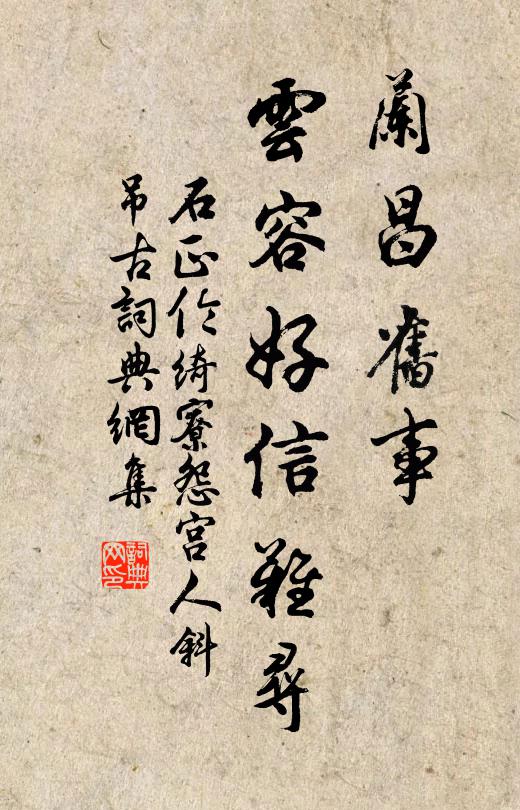 蘭昌舊事
雲容好信難尋
石正倫綺寮怨宮人斜
吊古詞典網集
詞典
网印